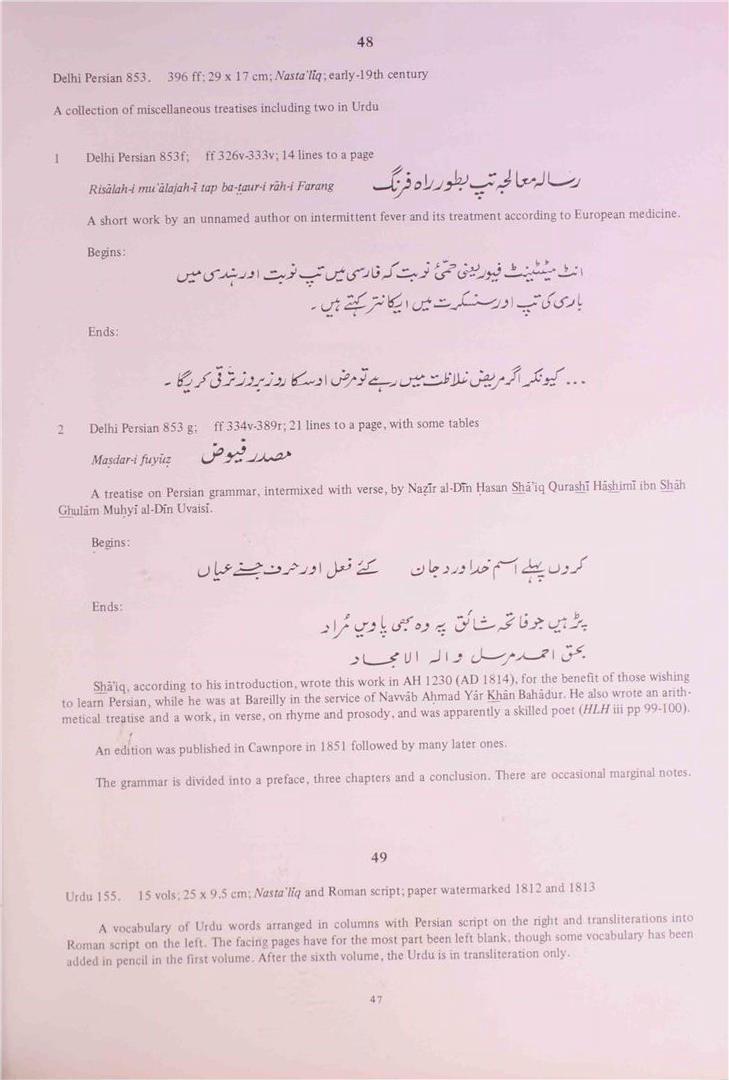 48
Delhi Persian 853. 396 ff; 29 x 17 cm; Nasta'līq; early-19th century
A collection of miscellaneous treatises including two in Urdu
1 Delhi Persian 853f; ff 326v-333v; 14 lines to a page
Risālah-i mu'ālajah-i tap ba-ṭaur-i rāh-i Farang رسالہ معالجہ تپ بطور راہ فرنگ
A short work by an unnamed author on intermittent fever and its treatment according to European medicine.
Begins:
انٹ میٹینٹ فیور یعنی حمّیٰ نوبت کہ فارسی میں تپ نوبت اور ہندی میں
باری کی تپ اور سنسکرت میں ایکانتر کہتے ہیں ۔
Ends:
... کیونکر اگر مریض غلاظت میں رہے تو مرض اوسکا روز بروز ترقی کریگا ۔
2 Delhi Persian 853 g; ff 334v-389r; 21 lines to a page, with some tables
Maṣdar-i fuyūẓ مصدر فیوض
A treatise on Persian grammar, intermixed with verse, by Naẓīr al-Dīn Ḥasan Shā'iq Qurashī Hāshimī ibn Shāh
Ghulām Muḥyī al-Dīn Uvaisī.
Begins:
کروں پہلے اسم خدا ورد جان کئے فعل اور حرف جسنے عیاں
Ends:
پڑہیں جو فاتحہ شائق پہ وہ بھی پاویں مُراد
بحق احمد مرسل و الہ الامجاد
Shā'iq, according to his introduction, wrote this work in AH 1230 (AD 1814), for the benefit of those wishing
to learn Persian, while he was at Bareilly in the service of Navvāb Aḥmad Yār Khān Bahādur. He also wrote an arith-
metical treatise and a work, in verse, on rhyme and prosody, and was apparently a skilled poet (HLH iii pp 99-100).
An edition was published in Cawnpore in 1851 followed by many later ones.
The grammar is divided into a preface, three chapters and a conclusion. There are occasional marginal notes.
49
Urdu 155. 15 vols; 25 x 9.5 cm; Nasta'līq and Roman script; paper watermarked 1812 and 1813
A vocabulary of Urdu words arranged in columns with Persian script on the right and transliterations into
Roman script on the left. The facing pages have for the most part been left blank, though some vocabulary has been
added in pencil in the first volume. After the sixth volume, the Urdu is in transliteration only.
47